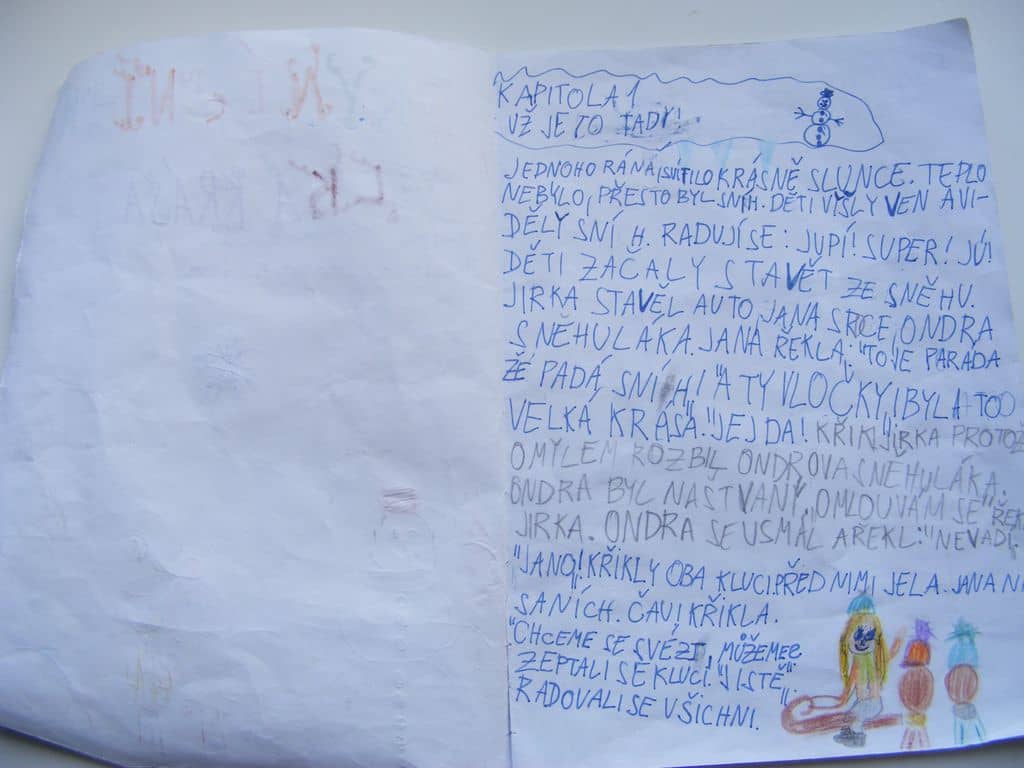 KAPITOLA 1
UŽ JE TO TADY!
JEDNOHO RÁNA SVÍTILO KRÁSNĚ SLUNCE. TEPLO
NEBYLO, PŘESTO BYL SNÍH. DĚTI VYŠLY VEN A VI-
DĚLY SNÍH. RADUJÍ SE: JUPÍ! SUPER! JÚ!
DĚTI ZAČALY STAVĚT ZE SNĚHU.
JIRKA STAVĚL AUTO, JANA SRDCE, ONDRA
SNĚHULÁKA. JANA ŘEKLA: "TO JE PARÁDA
ŽE PADÁ SNÍH!" "A TY VLOČKY! BYLA TO
VELKÁ KRÁSA." "JEJDA! KŘIKL JIRKA PROTOŽ
OMYLEM ROZBIL ONDROVA SNEHULÁKA.
ONDRA BYL NASTVANÝ. "OMLOUVÁM SE" ŘEK
JIRKA. ONDRA SE USMÁL A ŘEKL: "NEVADÍ.
"JANO! KŘIKLY OBA KLUCI. PŘED NIMI JELA JANA N
SANÍCH. ČAU! KŘIKLA.
"CHCEME SE SVÉZT, MŮŽEME?
ZEPTALI SE KLUCI. "JISTĚ"
RADOVALI SE VŠICHNI.